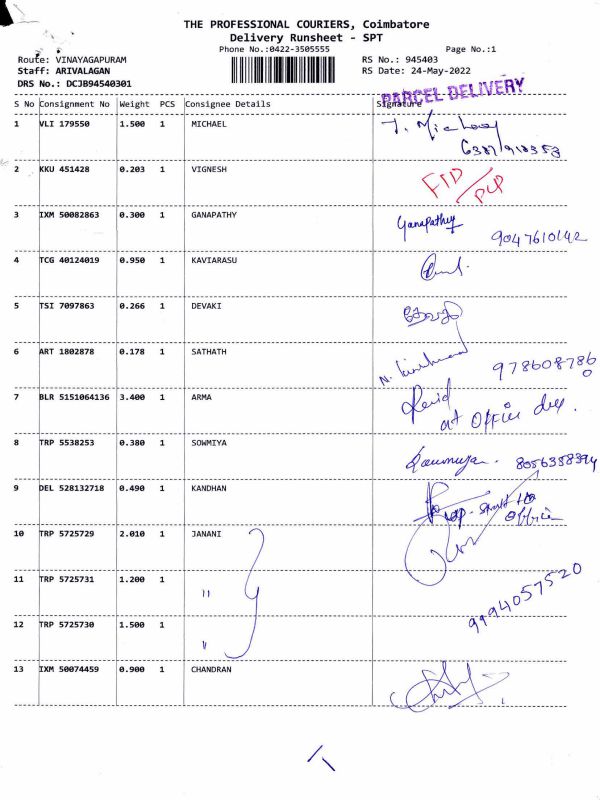 THE PROFESSIONAL COURIERS, Coimbatore
Delivery Runsheet - SPT
Phone No.:0422-3505555 Page No.:1
Route: VINAYAGAPURAM RS No.: 945403
Staff: ARIVALAGAN RS Date: 24-May-2022
DRS No.: DCJB94540301
PARCEL DELIVERY
S No Consignment No Weight PCS Consignee Details Signature
1 VLI 179550 1.500 1 MICHAEL J. Michael
2 KKU 451428 0.203 1 VIGNESH
3 IXM 50082863 0.300 1 GANAPATHY Ganapathy
9047610142
4 TCG 40124019 0.950 1 KAVIARASU
5 TSI 7097863 0.266 1 DEVAKI
6 ART 1802878 0.178 1 SATHATH
9786087860
7 BLR 5151064136 3.400 1 ARMA
at Office
8 TRP 5538253 0.380 1 SOWMIYA Sowmiya. 8056358394
9 DEL 528132718 0.490 1 KANDHAN
Office
10 TRP 5725729 2.010 1 JANANI
11 TRP 5725731 1.200 1 "
9994057520
12 TRP 5725730 1.500 1 "
13 IXM 50074459 0.900 1 CHANDRAN